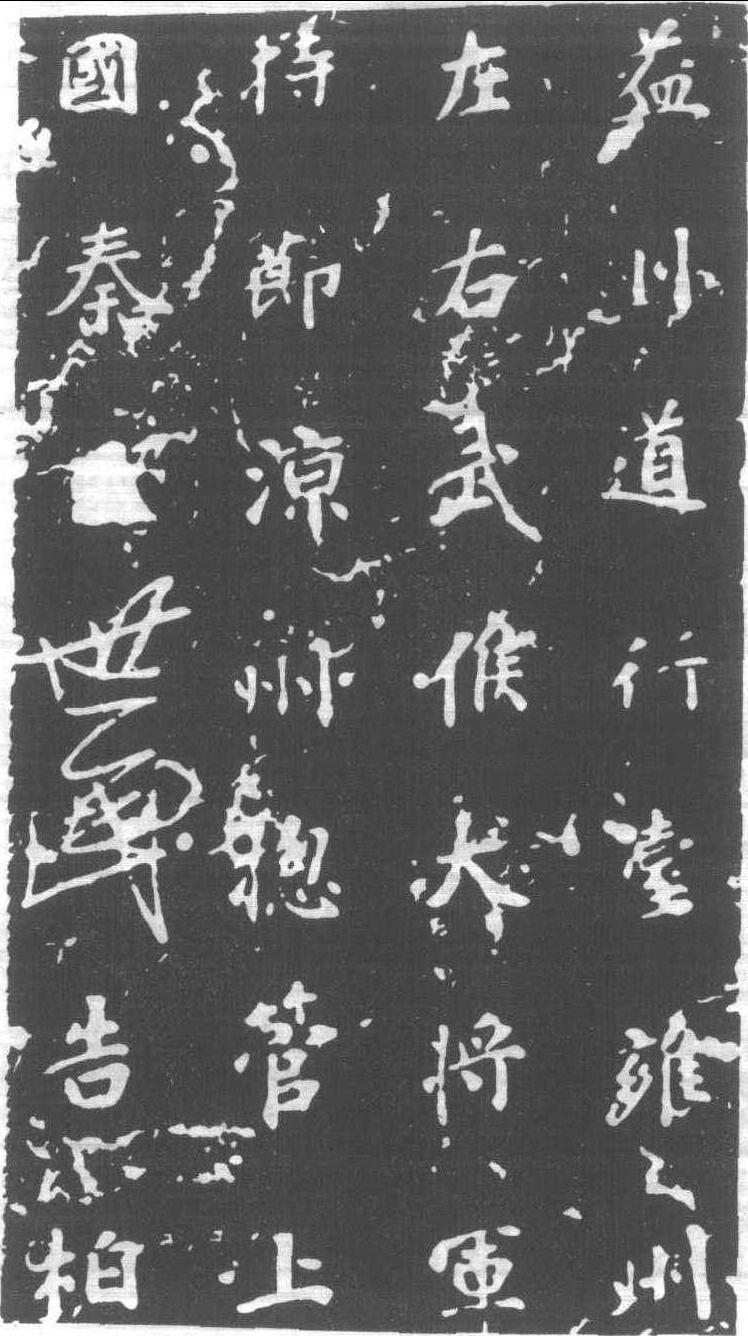 益州道行臺雍州
左右武候大将軍
持節涼州總管上
國秦世民告柏